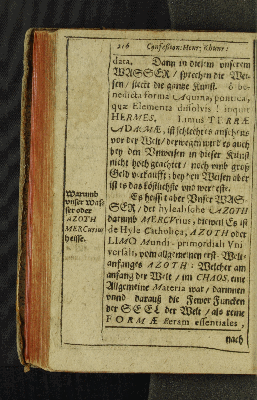 216 Confession: Henr: Khunr:
data. Dann in diesem unserem
WASSER / sprechen die Wei-
sen / steckt die gantze Kunst. ô be-
nedicta forma Aquina, pontica,
quæ Elementa dissolvis! inquit
HERMES. Limus TERRÆ
ADAMÆ, ist schlechts ansehens
vor der Welt / derwegen wird es auch
bey den Unweisen in dieser Kunst
nicht hoch geachtet / noch umb groß
Geld verkaufft; bey den Weisen aber
ist es das Köstlichste und werteste.
Warumb
unser Was-
ser oder
AZOTH
MERCurius
heisse.
Es heisst aber Unser WAS-
SER / der hylealische CAZOTH
darumb MERCVrius, dieweil Es ist
de Hyle Catholica, AZOTH oder
LIMO Mundi primordiali Uni
versali, vom allgemeinen erst-Welt-
anfanges AZOTH: Welcher am
anfang der Welt / im CHAOS, eine
Allgemeine Materia war / darinnen
unnd darauß die Fewer Funcken
der SEEL der Welt / als reine
FORMÆ Rerum essentiales,
nach